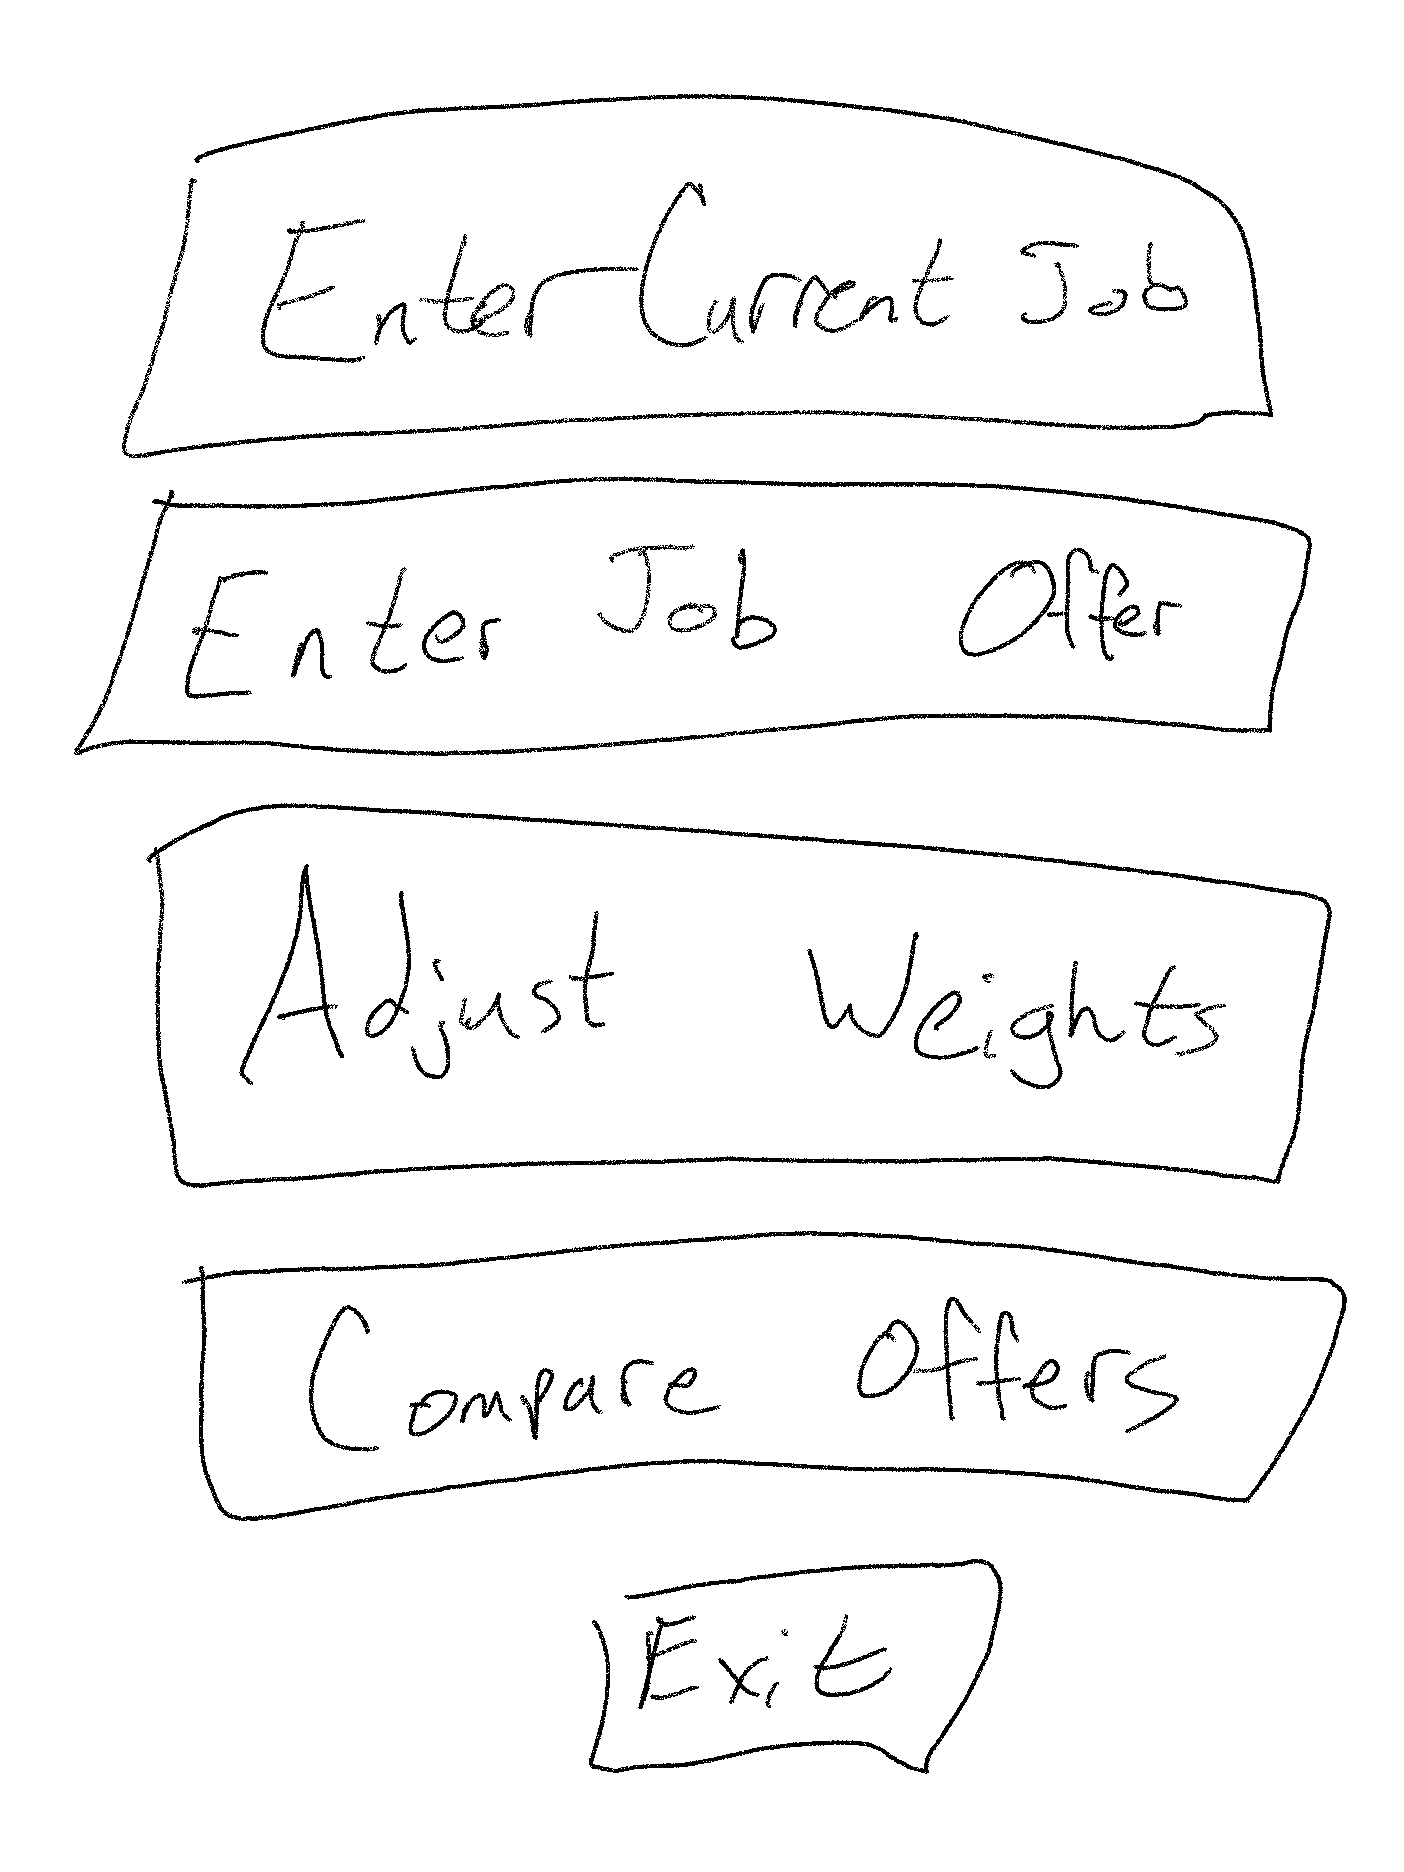 Enter Current Job
Enter Job Offer
Adjust Weights
Compare Offers
Exit